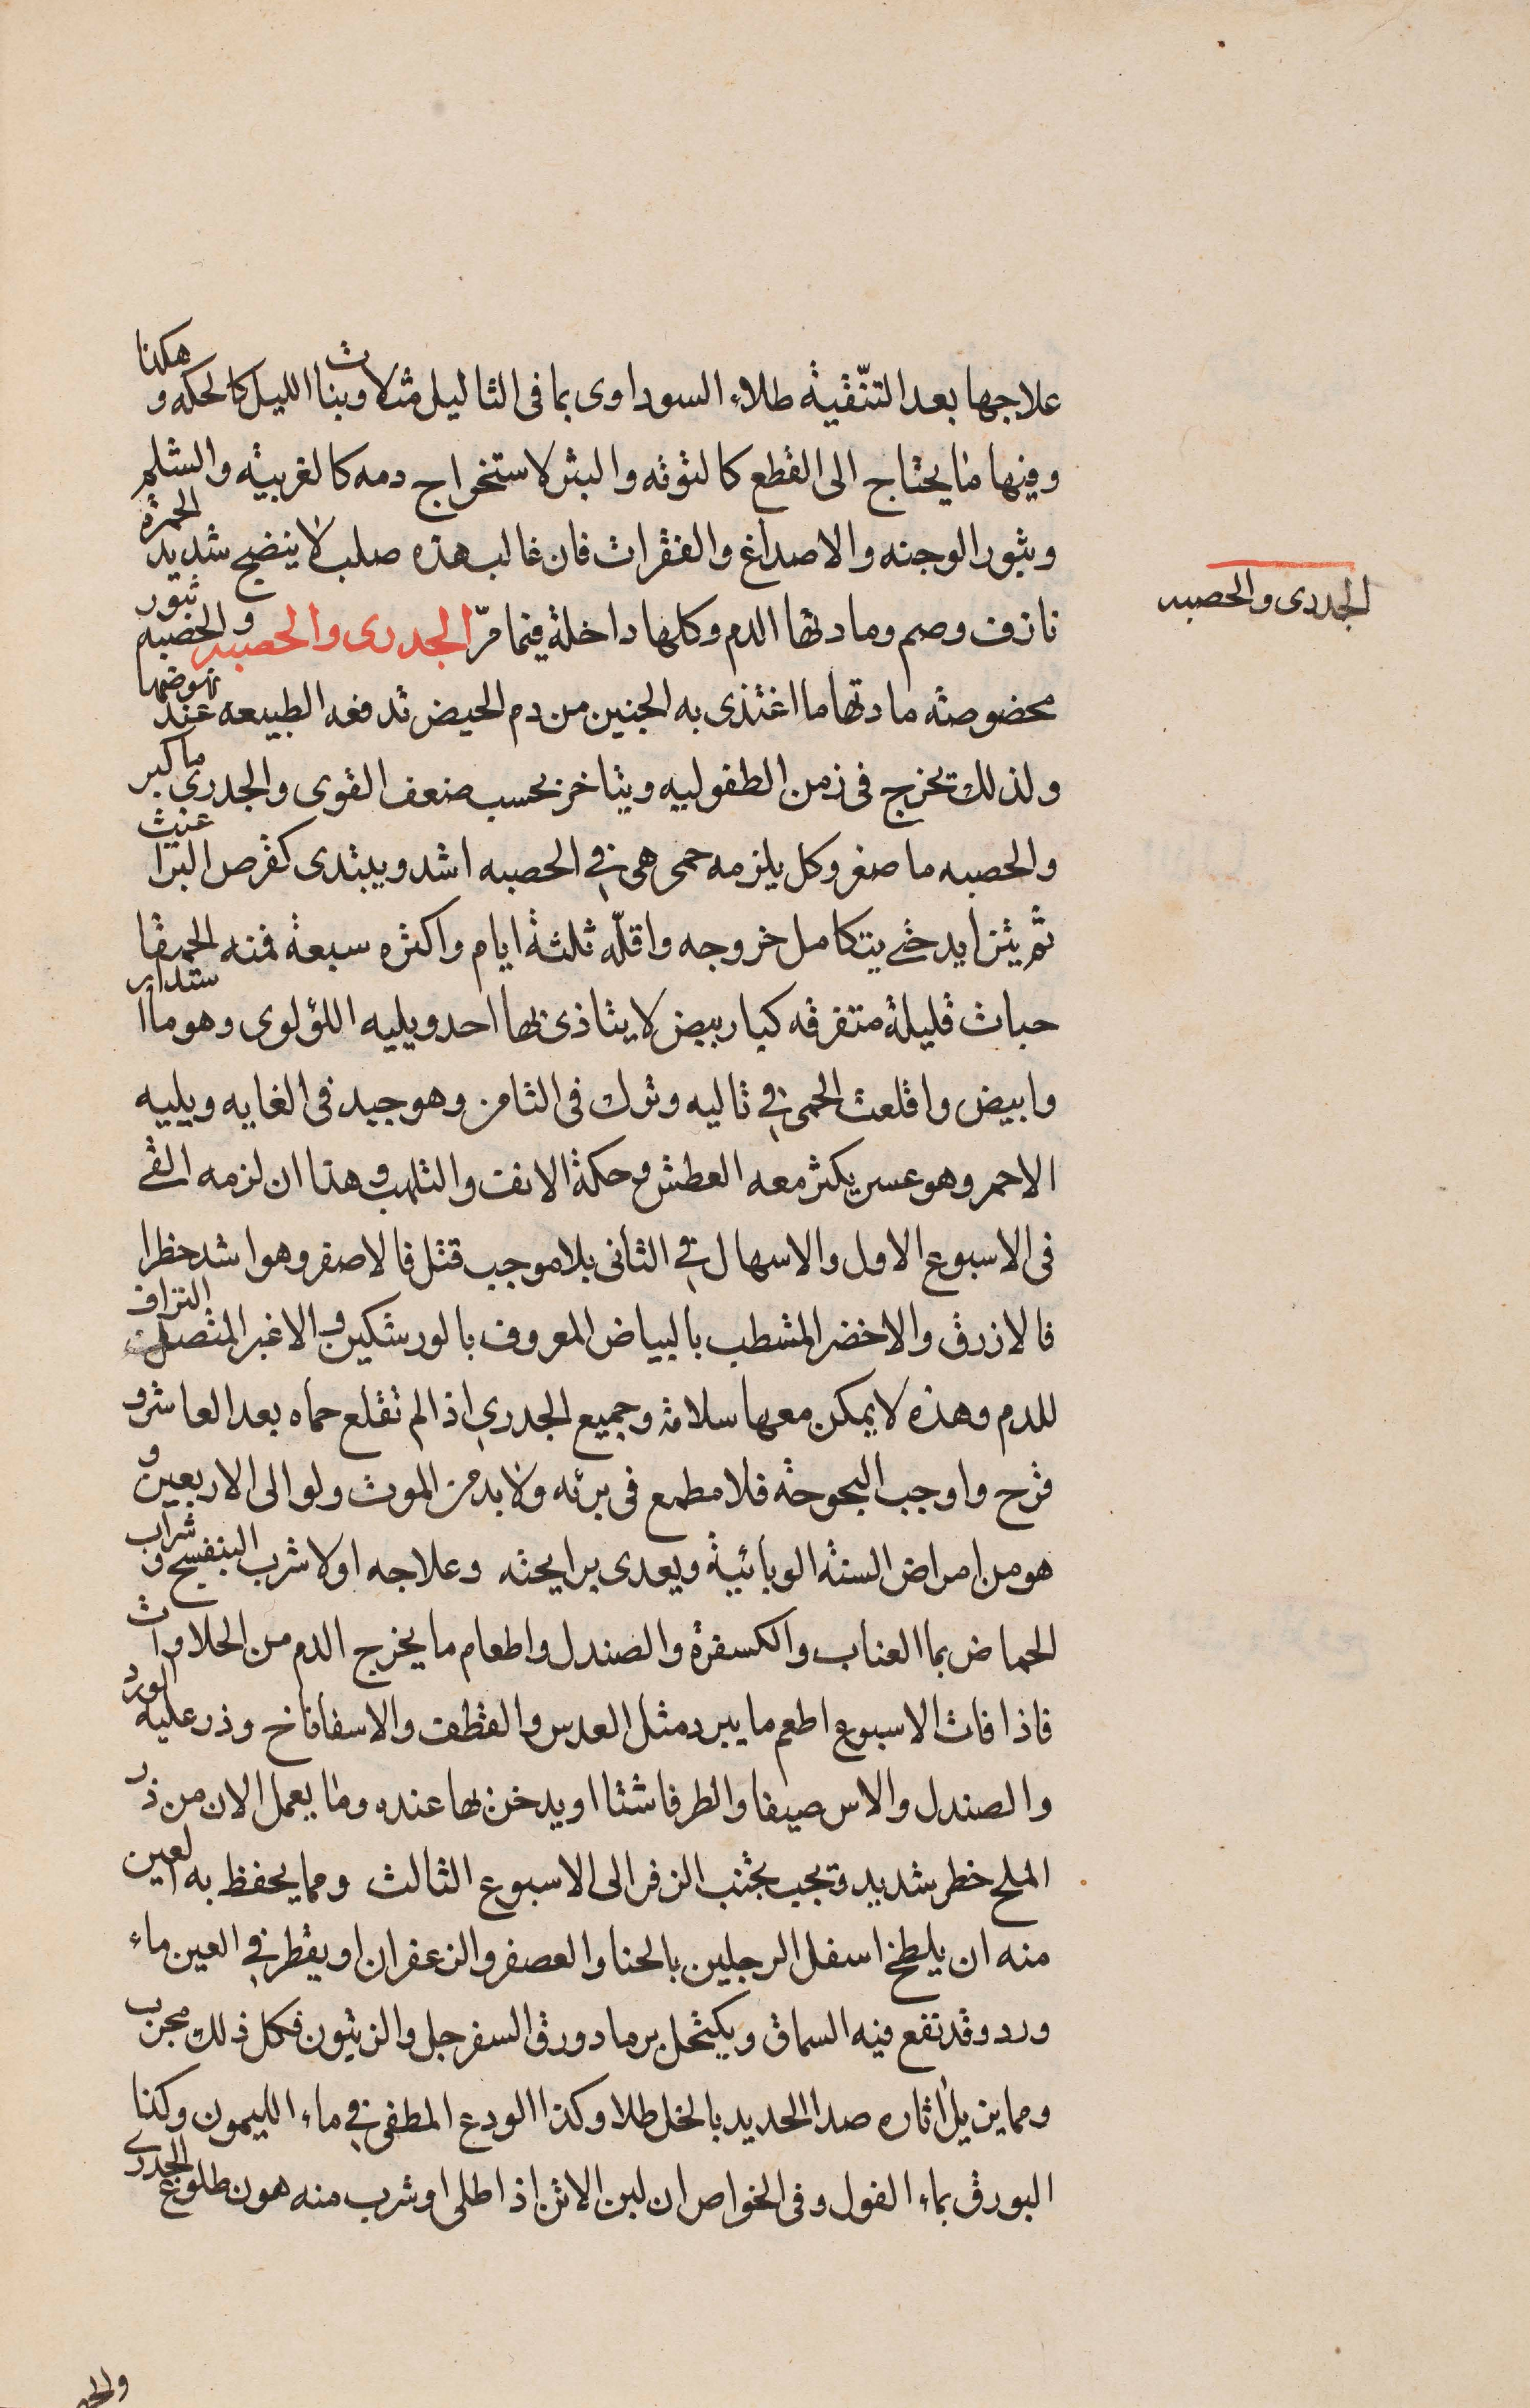 علاجها بعد التنّقية طلاء السوداوى بما فى الثاليل مثلا وبنات الليل كالحكه و هكذا
وفيها ما يحتاج الى القطع كالتوته والبثر لاستخراج دمه كالغربيه والشلم
وبثور الوجنه والاصداغ والفقرات فان غالب هذه صلب لا ينضج شديد الحمرة
نازف وصم ومادتها الدم وكلها داخلة فيما مرّ الجدرى والحصبه والحصبه ثبور
الجدرى والحصبه
مخصوصه مادتها ما اغتذى به الجنين من دم الحيض تدفعه الطبيعه عند نهوضها
ولذلك تخرج فى زمن الطفوليه ويتاخر بحسب ضعف القوى والجدرى ما كبر
والحصبه ما صغر وكل يلزمه حمى هى في الحصبه اشد ويبتدى كقرص البراغيث
ثم يتزايد حتى يتكامل خروجه واقلّه ثلثة ايام واكثره سبعة فمنه الحميقا
حبات قليلة متفرقه كبار بيض لا يتاذى بها احد ويليه اللؤلوى وهو ما استدار
وابيض واقلعت الحمى في تاليه وترك فى الثامن وهو جيد فى الغايه ويليه
الاحمر وهو عسر يكثر معه العطش وحكة الانف والتلهب وهذا ان لزمه القى
فى الاسبوع الاول والاسهال في الثانى بلا موجب قتل فالاصفر وهو اشد خطرا
فالازرق والاخضر المشطب بالبياض المعروف بالورشكين والاغبر المتصل النزاف
للدم وهذه لا يمكن معها سلامة وجميع الجدري اذا لم تقلع حماه بعد العاشر و
قرح واوجب البحوحة فلا مطمع فى برئه ولا بد من الموت ولو الى الاربعين و
هو من امراض السنة الوبائية ويعدى برايحته وعلاجه اولا شرب البنفسج و شراب
الحماض بما العناب والكسفرة والصندل واطعام ما يخرج الدم من الحلاوات
فاذا فات الاسبوع اطعم ما يبرد مثل العدس والقطف والاسفاناخ وذر عليه الورد
والصندل والاس صيفا والطرفا شتا او يدخن بها عنده وما يعمل الان من ذر
الملح خطر شديد ويجب تجنب الزفر الى الاسبوع الثالث ومما يحفظ به العين
منه ان يلطخ اسفل الرجلين بالحنا والعصفر والزعفران او يقطر في العين ماء
ورد وقد نقع فيه السماق ويكتحل برماد ورق السفرجل والزيتون فكل ذلك مجرب
ومما يزيل اثاره صدا الحديد بالخل طلا وكذا الودع المطفى في ماء الليمون وكذا
البورق بماء الفول وفى الخواص ان لبن الاتن اذا طلى او شرب منه هون طلوع الجدرى